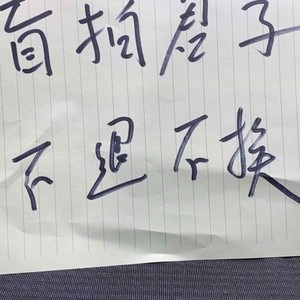 盲拍君子
不退不换